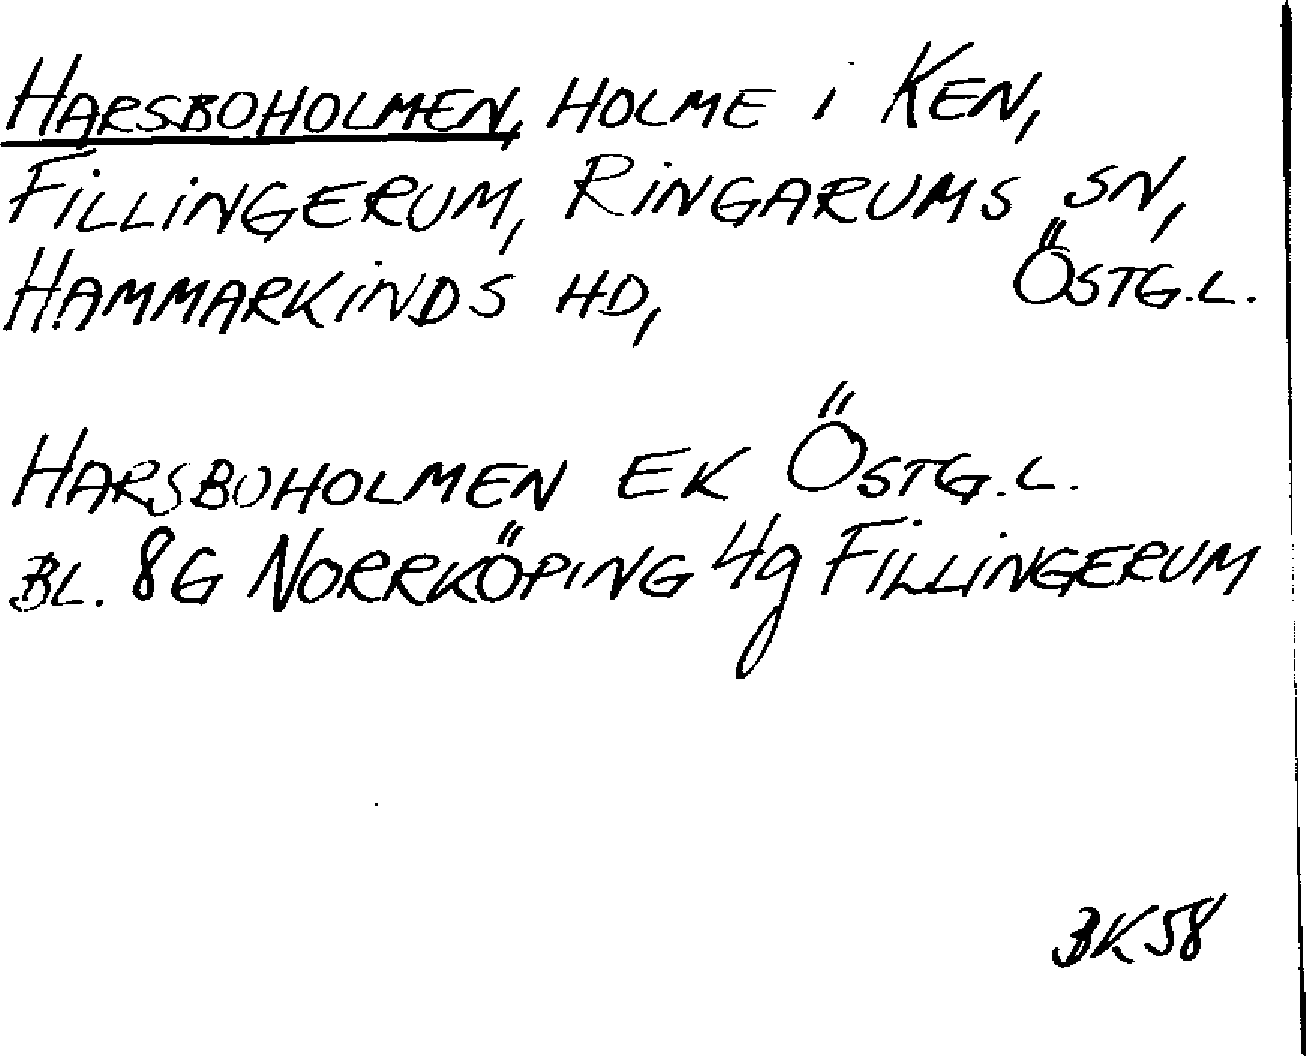 HARSBOHOLMEN, HOLME i KEN,
FiLLiNGERUM, RiNGARUMS SN,
HAMMARKiNDS HD, ÖSTG.L.
HARSBOHOLMEN EK ÖSTG.L.
BL. 8G NORRKÖPING 4g FiLLiNGERUM
BK58